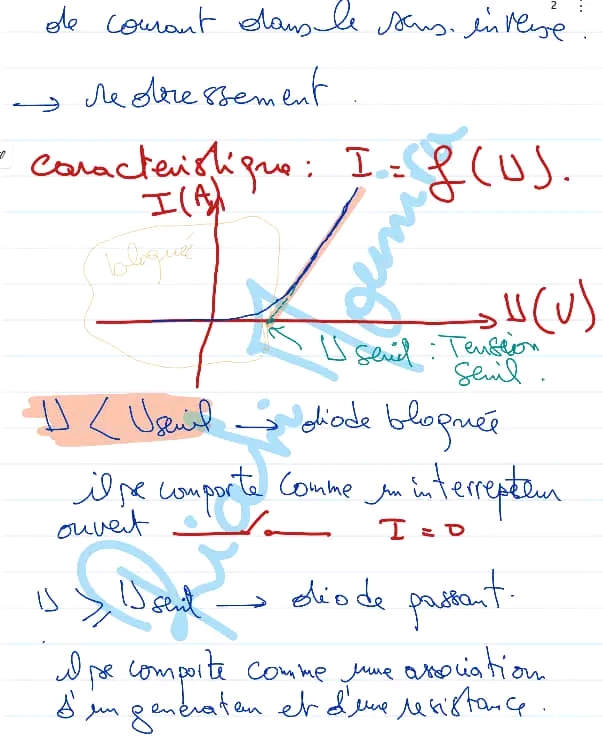 2
de courant dans le sens inverse.
→ redressement.
caracteristique : I = f(U).
I(A)
bloqué
U(V)
U seuil : Tension
Seuil.
U < Useuil → diode bloquée
il se comporte comme un interrepteur
ouvert I = 0
U ≥ Useuil → diode passant.
il se comporte comme une association
d'un generateur et d'une resistance.
Riachi Mounira